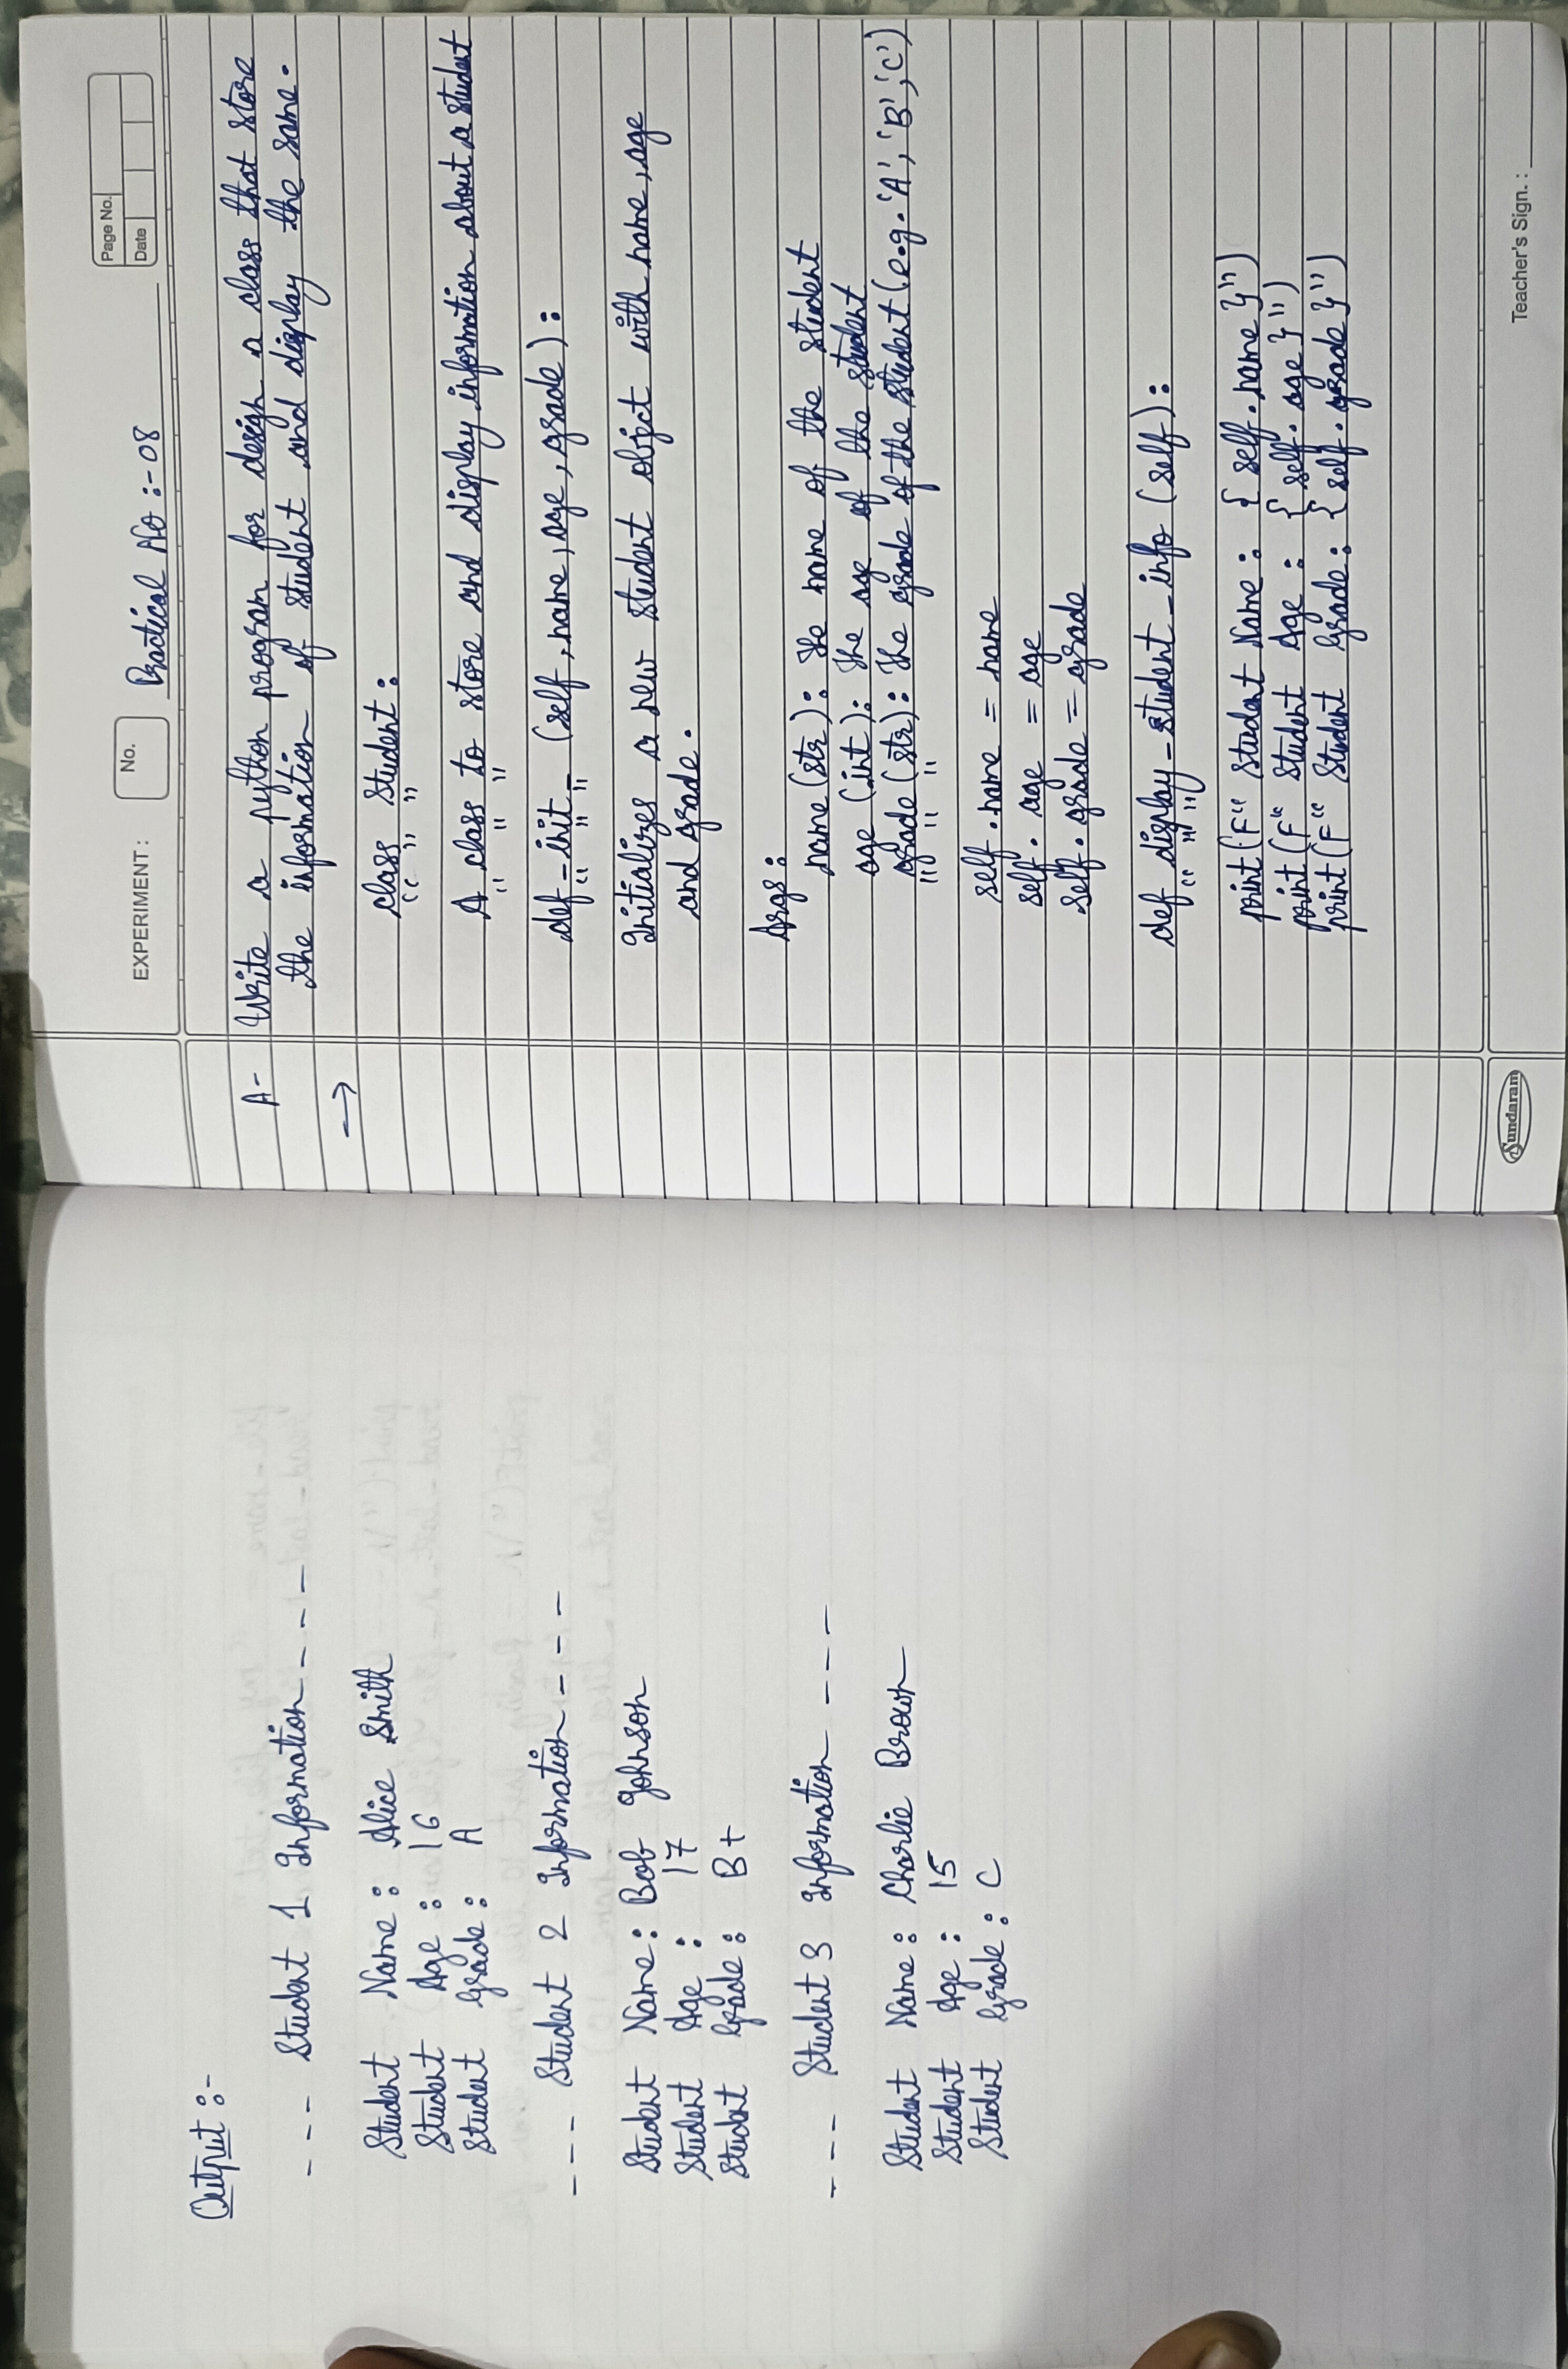 Output :-
--- Student 1 Information ---
Student Name : Alice Smith
Student Age : 16
Student Grade : A
--- Student 2 Information ---
Student Name : Bob Johnson
Student Age : 17
Student Grade : B+
--- Student 3 Information ---
Student Name : Charlie Brown
Student Age : 15
Student Grade : C
Page No.
Date
EXPERIMENT : No. Practical No :- 08
A- Write a python program for design a class that store
the information of student and display the same.
→
class Student :
“ ” ”
A class to store and display information about a student
" " "
def _init_ (self, name, age, grade) :
“ " "
Initializes a new student object with name, age
and grade.
Args :
name (str) : The name of the student
age (int) : The age of the student
grade (str) : The grade of the student (e.g. 'A', 'B', 'C')
" " "
self.name = name
self.age = age
self.grade = grade
def display_student_info (self) :
“ " "
print (F“ Student Name : { self.name }")
print (F“ Student Age : { self.age }")
print (F“ Student Grade : { self.grade }")
Sundaram
Teacher's Sign. :